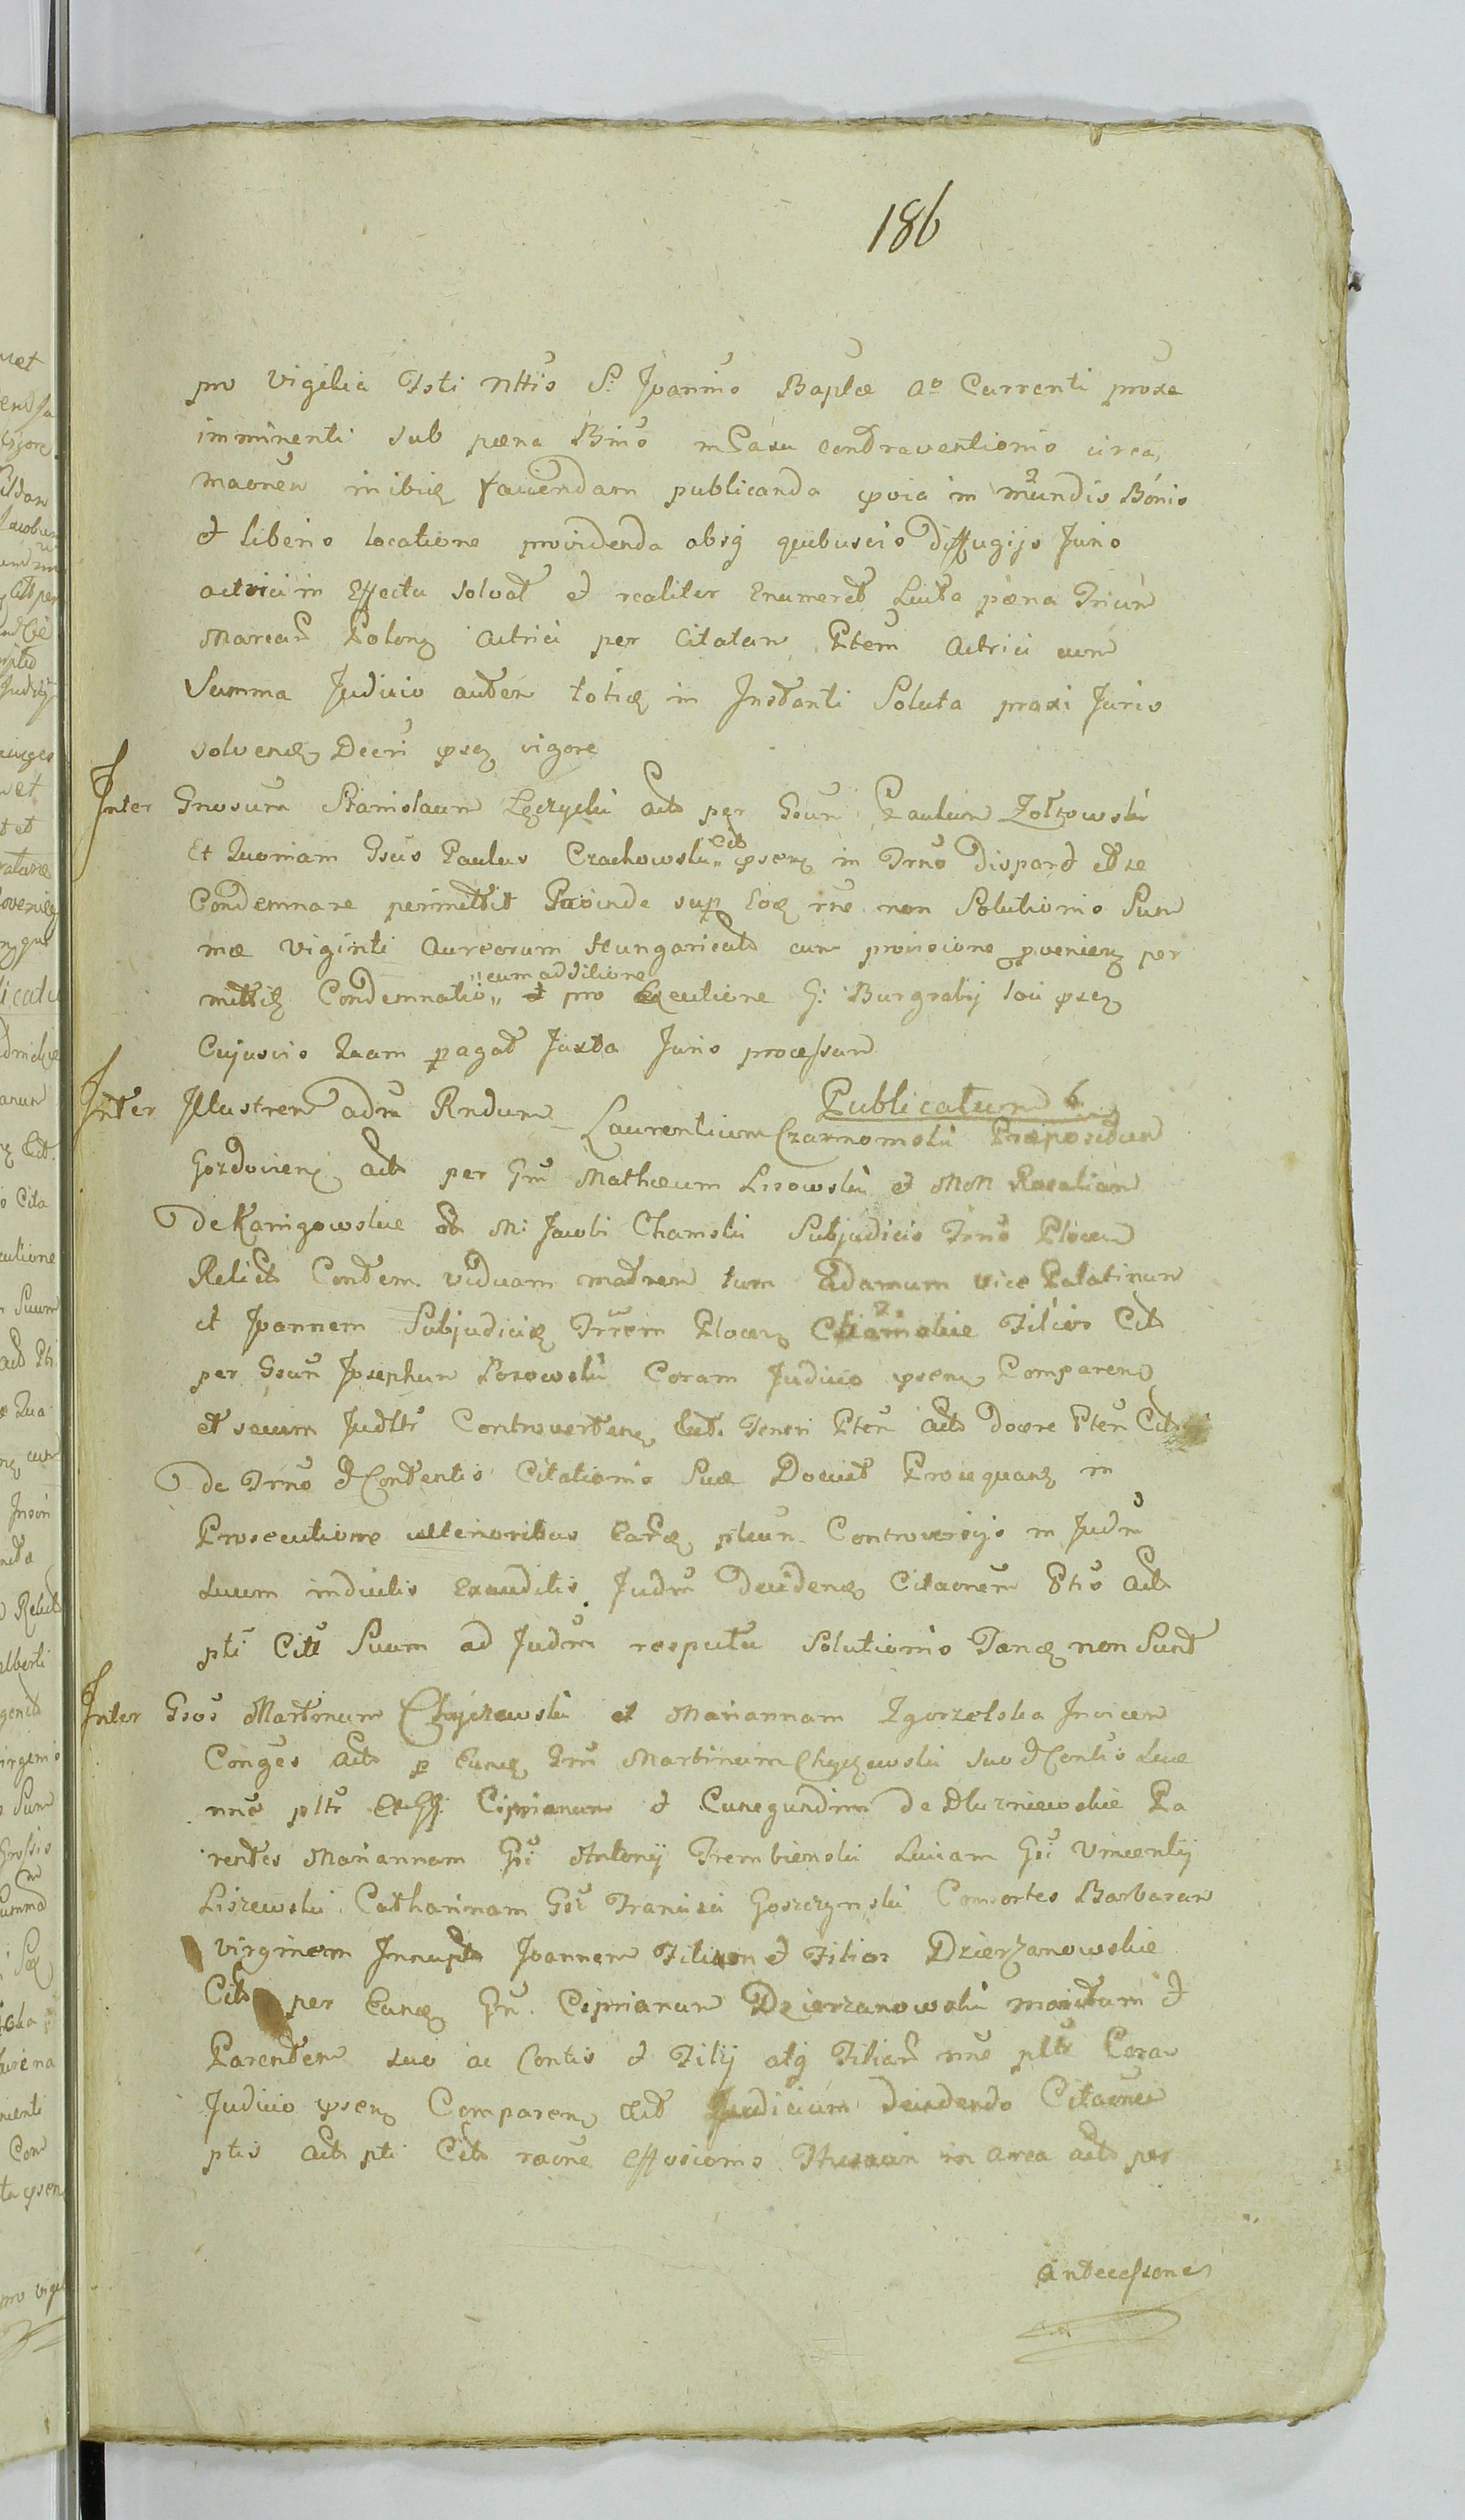 186
pro Vigilia Festi Nttis S: Joannis Baptæ Ao Currenti proxe
imminenti sub pæna Bnis in Casu contraventionis circa
maonem inibiq favendam publicanda pvia in mundis Bonis
et liberis locatione providenda absq quibusvis diffugijs Juris
actrici in Effectu solvat et realiter Enumeret Luita pæna Trium
Marcar Polonq actrici per Citatam Ptem actrici cum
Summa Judicio autem toties in Instanti Soluta praxi Juris
solvenq Decri psq vigore
Inter Gnosum Stanislaum Łęczycki act per Gsum Paulum Zołtowski
Et Quoniam Gsus Paulus Czachowski Cit psenq in Trno disparet et se
Condemnare permittit Proinde sup Eoq rne non Solutionis Sum
mæ Viginti Aureorum Hungaricalium cum provisione pvenienq per
mittiq Condemnatio cum additione et pro Executione G: Burgrabij loci psq
Cujusvis Quam pagat Juxta Juris processum
Publicatum
Inter Illustrem adm Rndum Laurentium Czarnomski Præpositum
Gozdoviensq act per Gm Mathæum Lisowski et MM Rosaliam
De Karnigowskie ol M: Jacobi Chamski Subjudicis Trris Plocen
Relict Contem Viduam matrem tum Adamum Vice Palatinum
et Joannem Subjudicis Trrem Plocenq Chamskie Filios Cit
per Gsum Josephum Borowski Coram Judicio psenq Comparenq
et secum Judltr Controvertenq Teneri Ptem act docere Ptem Cit
de Trno et Contentis Citationis Suæ Docuit Proseqquanq in
Prosecutione ulterioribus Earq ptium Controversijs in Judm
suum inductis Exauditis Judm decidenq Citaonem Ptis act
pti Cit Suum ad Judm respectu Solutionis non Sunt
Inter Gsos Martinum Chyczewski et Mariannam Zgorzelska Invicem
Conges act p Eunq Gm Martinum Chyczewski suo et Contis suæ
nne pltr et Ciprianum et Cunegundim de Dluzniewskie Pa
rentes Mariannam Gsi Antonij Trembienski Luciam Gsi Vincentij
Liszewski Catharinam Gsi Francisci Goszczynski Consortes Barbaram
Virginem Innupt Joannem Filium et Filias Dzierzanowskie
Cit per Eunq Gm Ciprianum Dzierzanowski maritum et
Parentem suo ac Contis et Filij atq Filiar nne pltr Coram
Judicio psenq Comparenq Judicium decidendo Citaonem
ptis act pti Cit raone Effosionis in area act per
antecessores